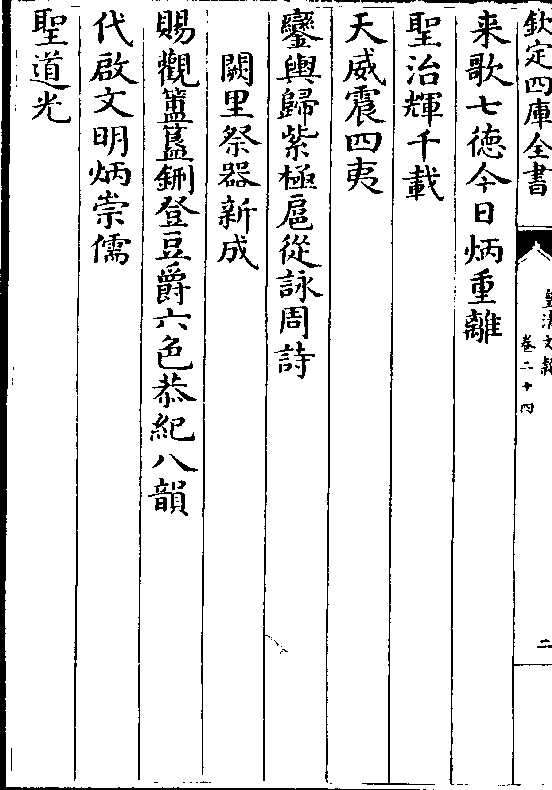 欽定四庫全書
皇清文穎
卷二十四
二
来歌七徳今日炳重離
聖治輝千載
天威震四夷
鑾輿歸紫極扈從詠周詩
闕里祭器新成
賜觀簠簋鉶登豆爵六色恭紀八韻
代啟文明炳崇儒
聖道光